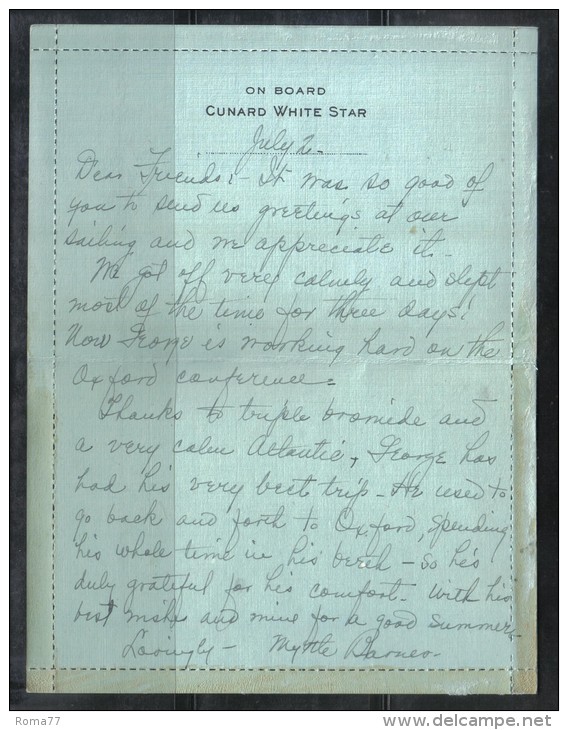 ON BOARD
CUNARD WHITE STAR
July 2.
Dear Friends:- It was so good of
you to send us greetings at our
sailing and we appreciate it.
We got off very calmly and slept
most of the time for three days!
Now George is working hard on the
Oxford conference.
Thanks to triple bromide and
a very calm Atlantic, George has
had his very best trip - He used to
go back and forth to Oxford, spending
his whole time in his berth - So he's
duly grateful for his comfort. With his
best wishes and mine for a good summer,
Lovingly - Myrtle Barnes.
Roma77
www.delcampe.net